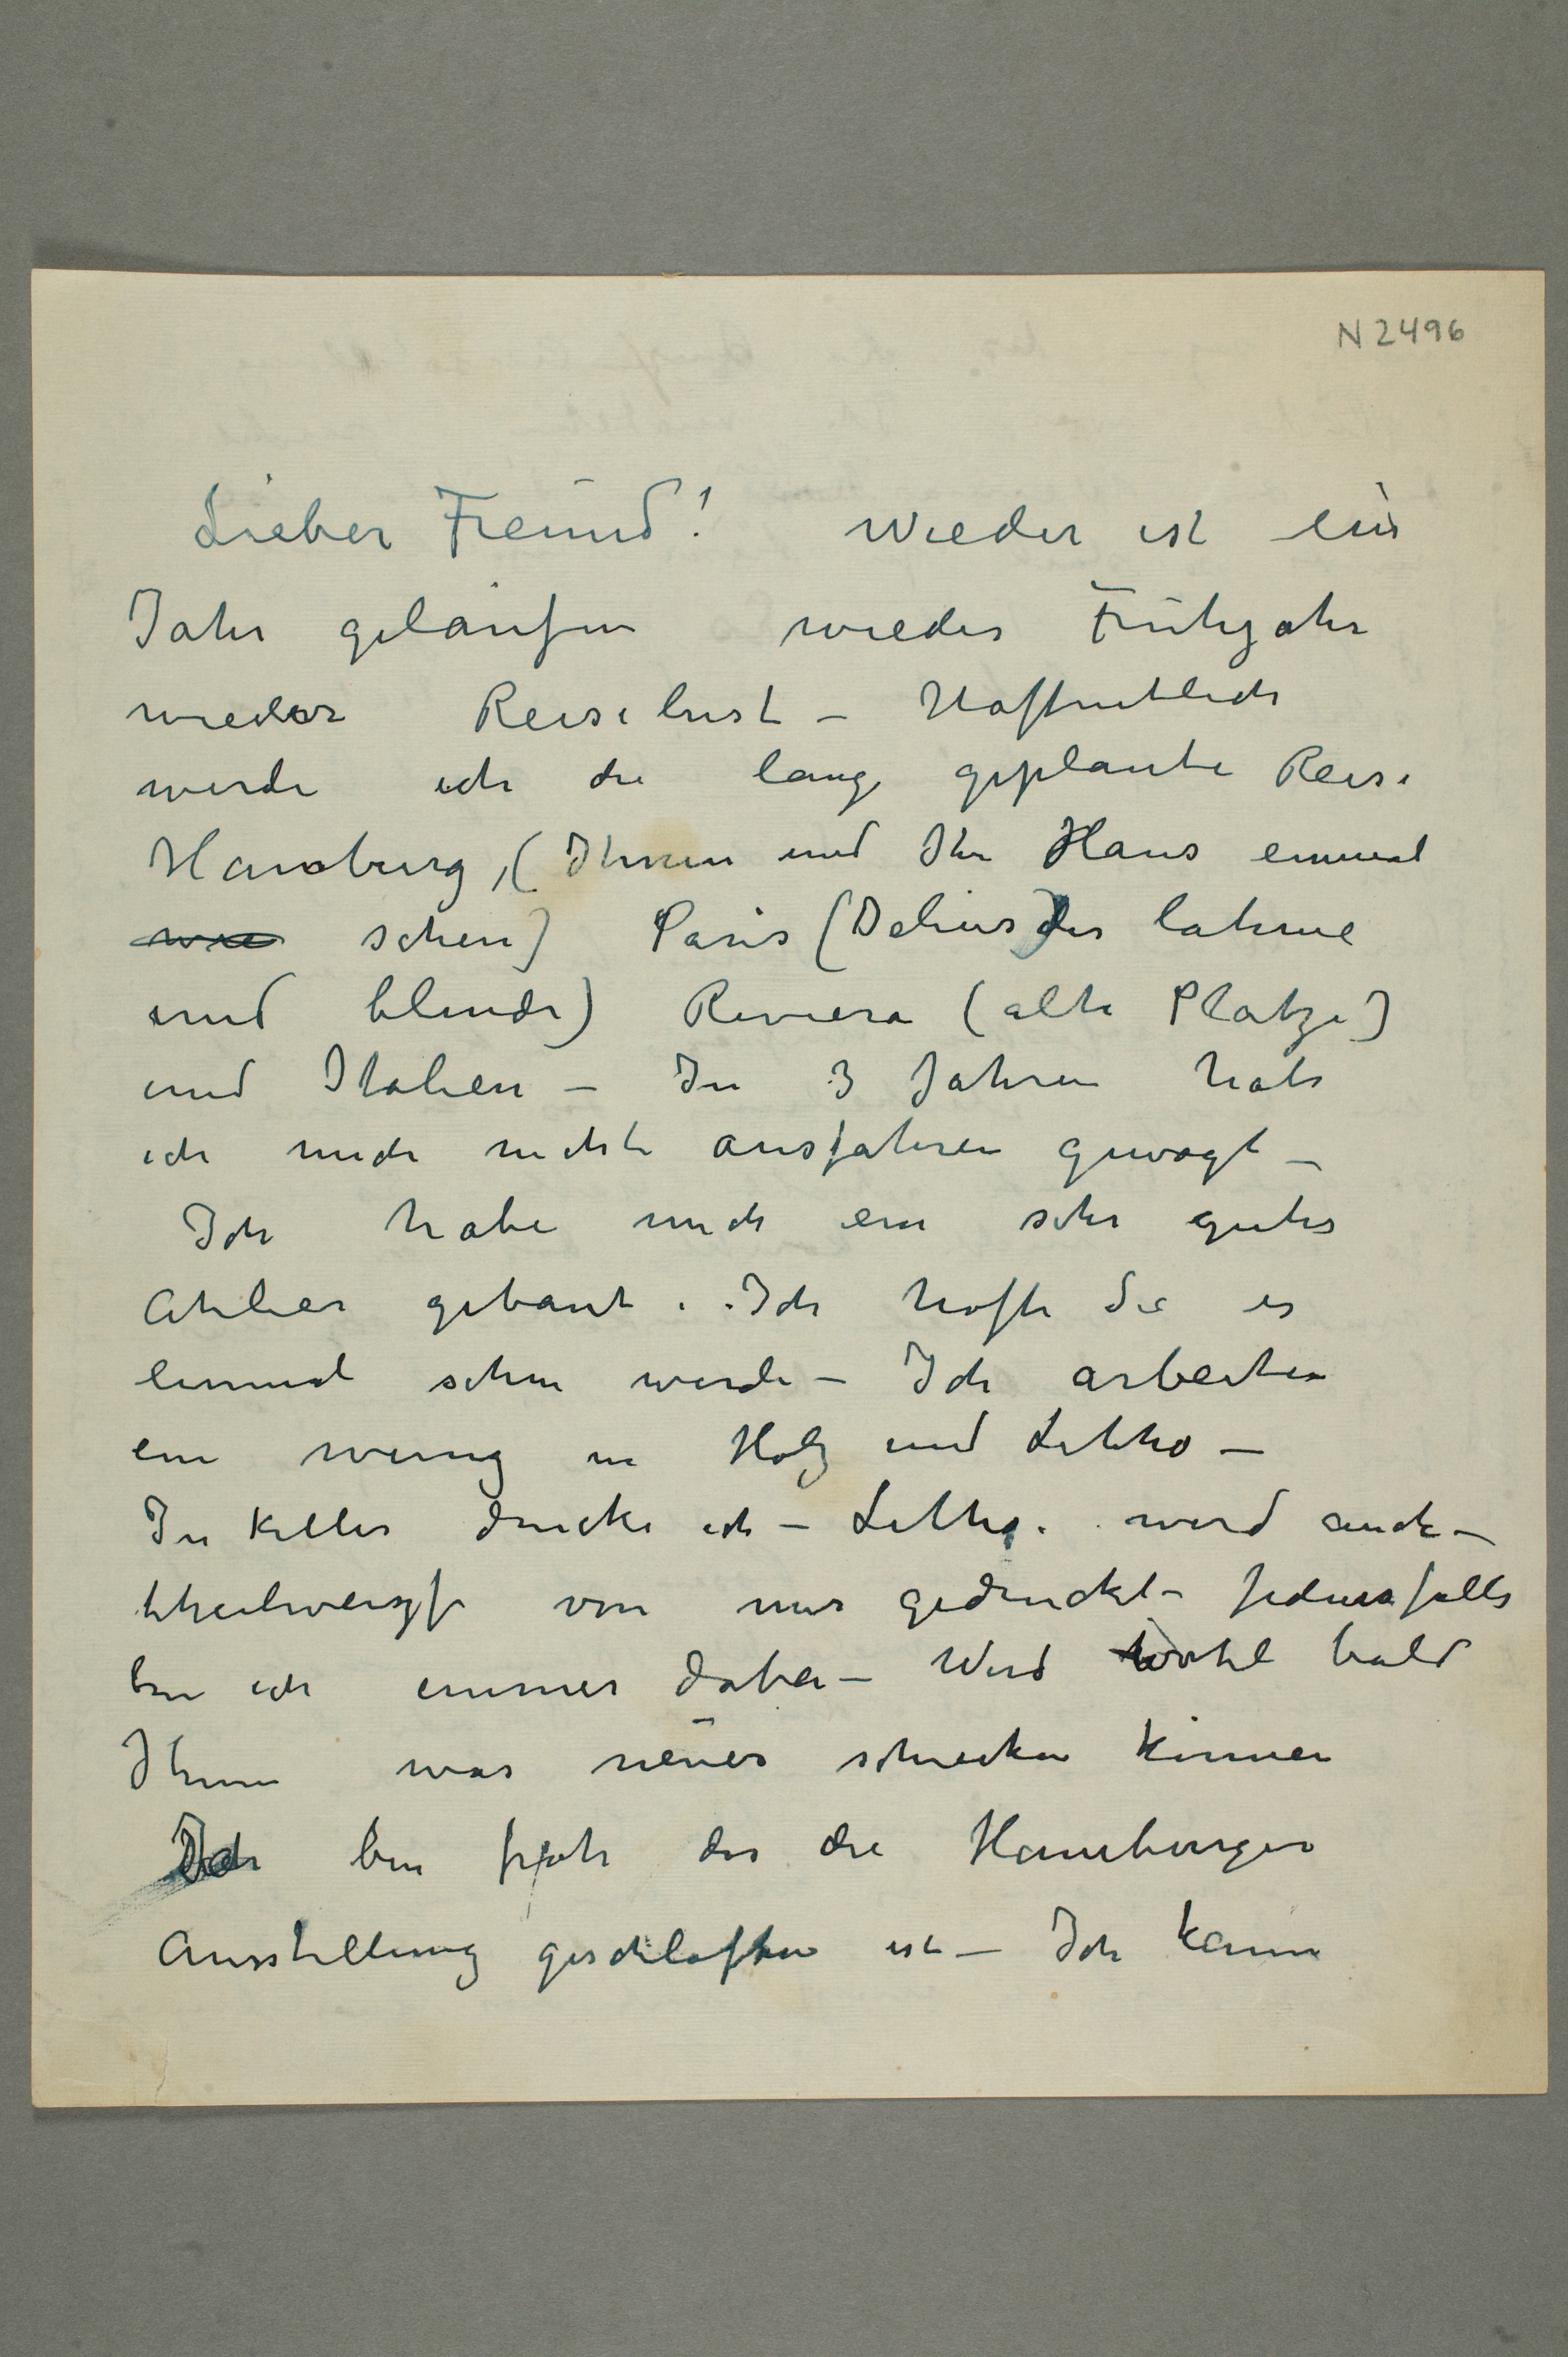 N 2496
Lieber Freund! Wieder ist ein
Jahr gelaufen wieder Frühjahr
wieder Reiselust – Hoffentlich
werde ich die lang geplante Reise
Hamburg, (Ihnen und Ihr Haus einmal
wie sehen) Paris (Delius der lahme
und blinde) Riviera (alte Platze)
und Italien – In 3 Jahren habe
ich mich nicht ausfahren gewagt –
Ich habe mich ein sehr gutes
Atelier gebaut. Ich hoffe Sie es
einmal sehen werde – Ich arbeite
ein wenig in Holz und Litho –
In Keller drucke ich – Litho. wird auch –
theilweise von mir gedruckt – Jedenfalls
bin ich immer dabei – Werd wohl bald
Ihnen was neues schicken können
Ich bin froh das die Hamburger
Ausstellung geschloffen ist – Ich kann